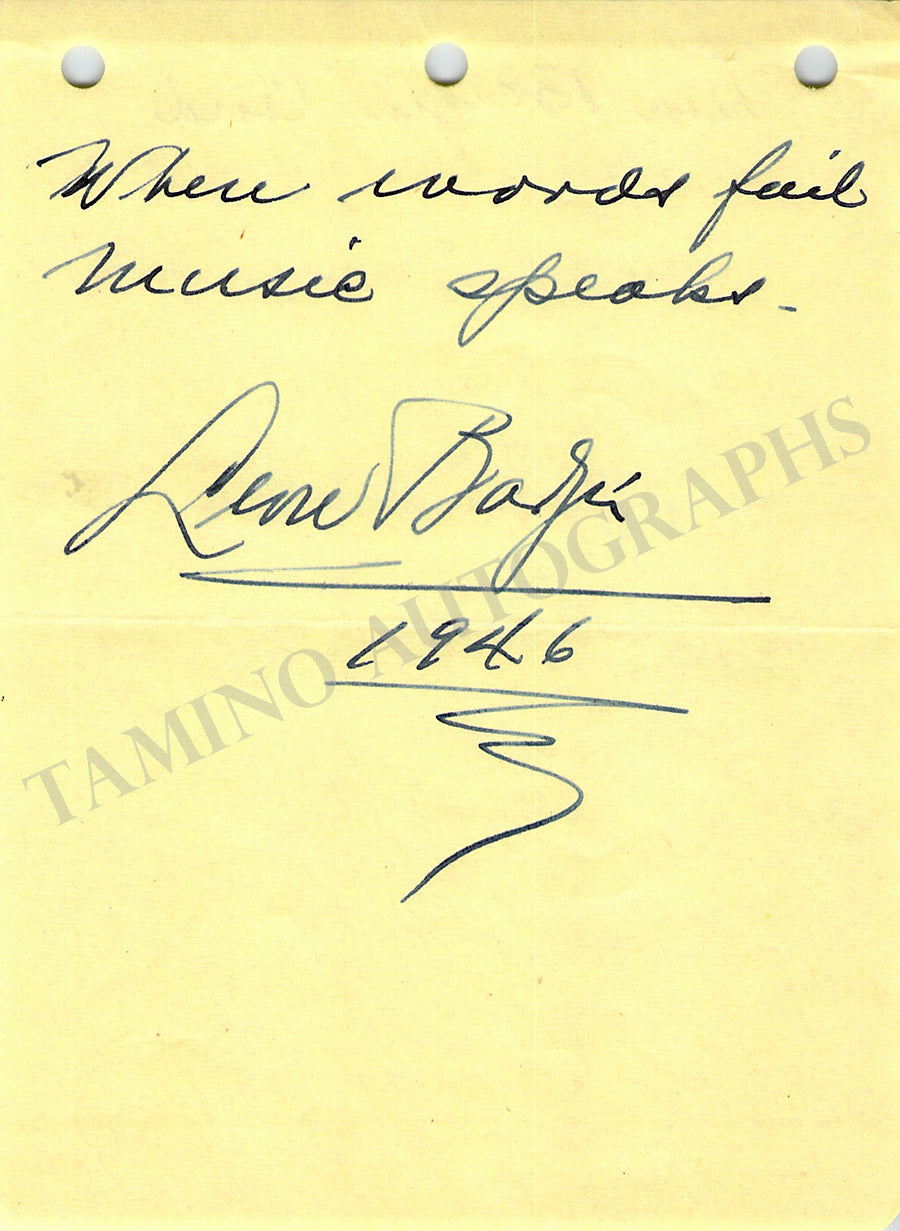 When words fail
Music speaks.
Leon Barzin
1946
TAMINO AUTOGRAPHS